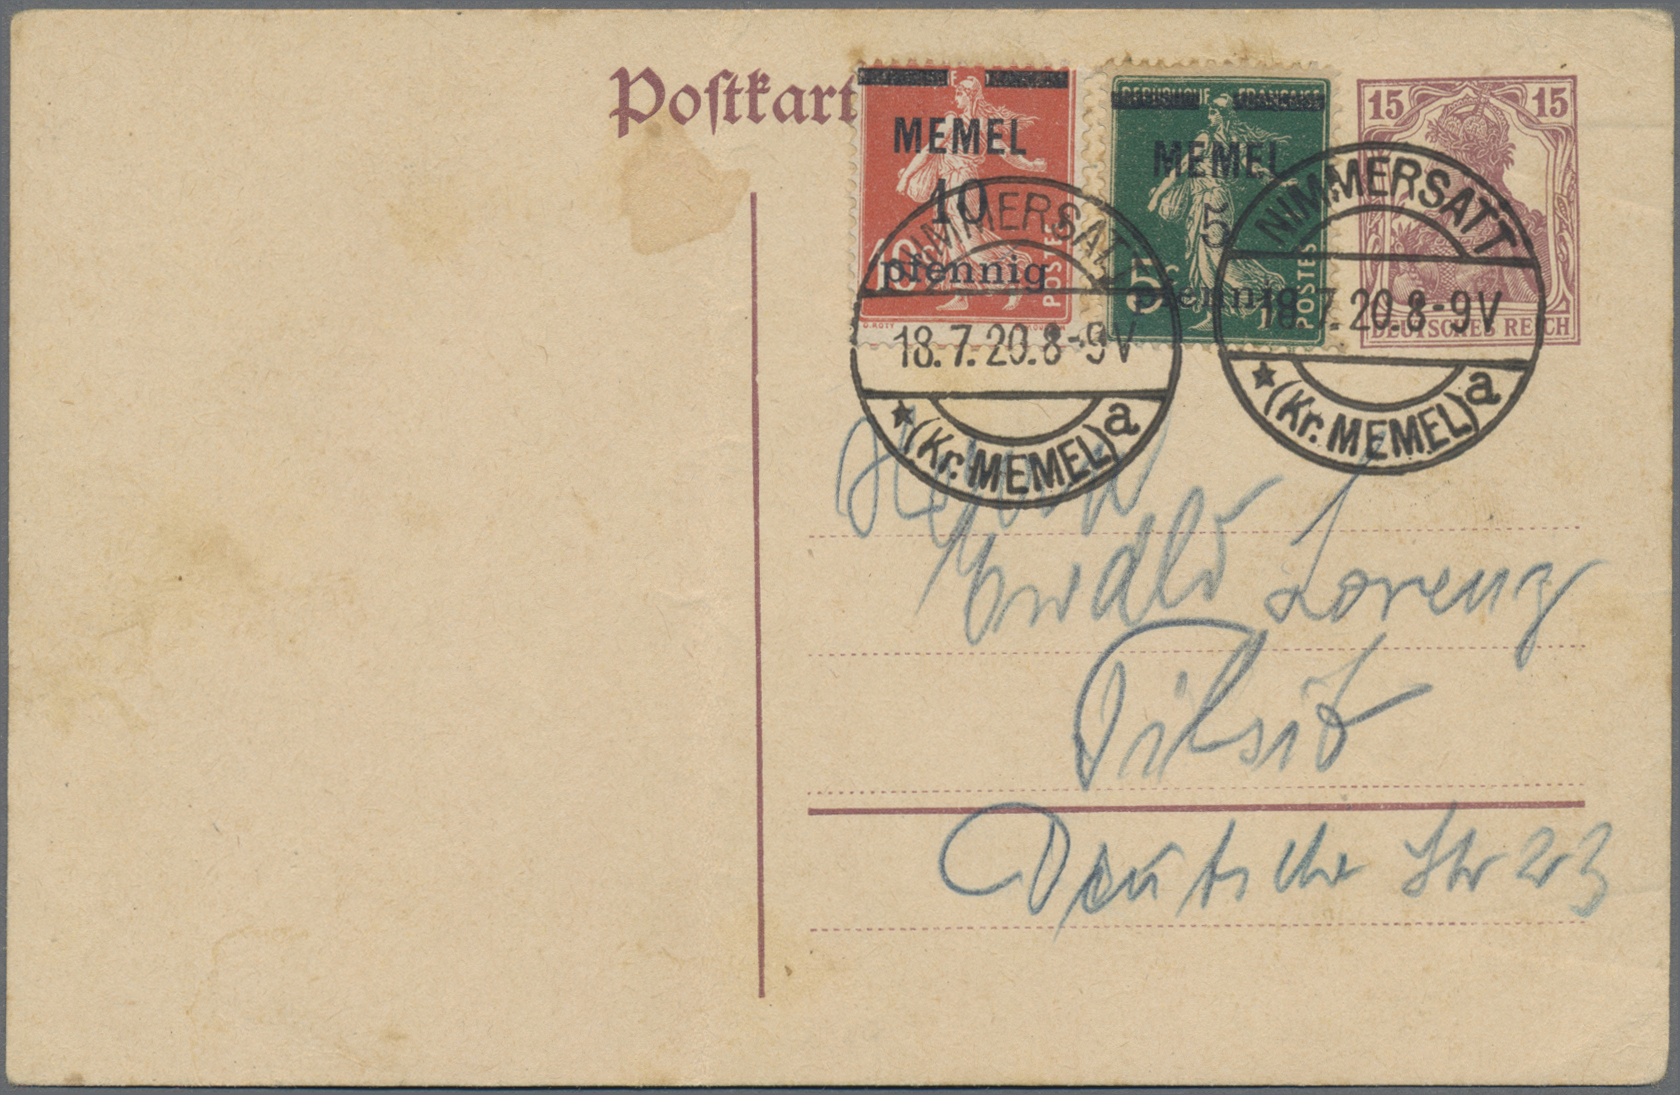 Postkart
F
MEMEL
10
pfennig
10 c
POSTES
O. ROTY
REPUBLIQUE FRANÇAISE
MEMEL
5
pfennig
5 c
POSTES
15 15
DEUTSCHES REICH
NIMMERSATT
18.7.20.8-9V
★ (Kr. MEMEL) a
NIMMERSATT
18.7.20.8-9V
★ (Kr. MEMEL) a
Herrn
Ewald Lorenz
Tilsit
Deutsche Str